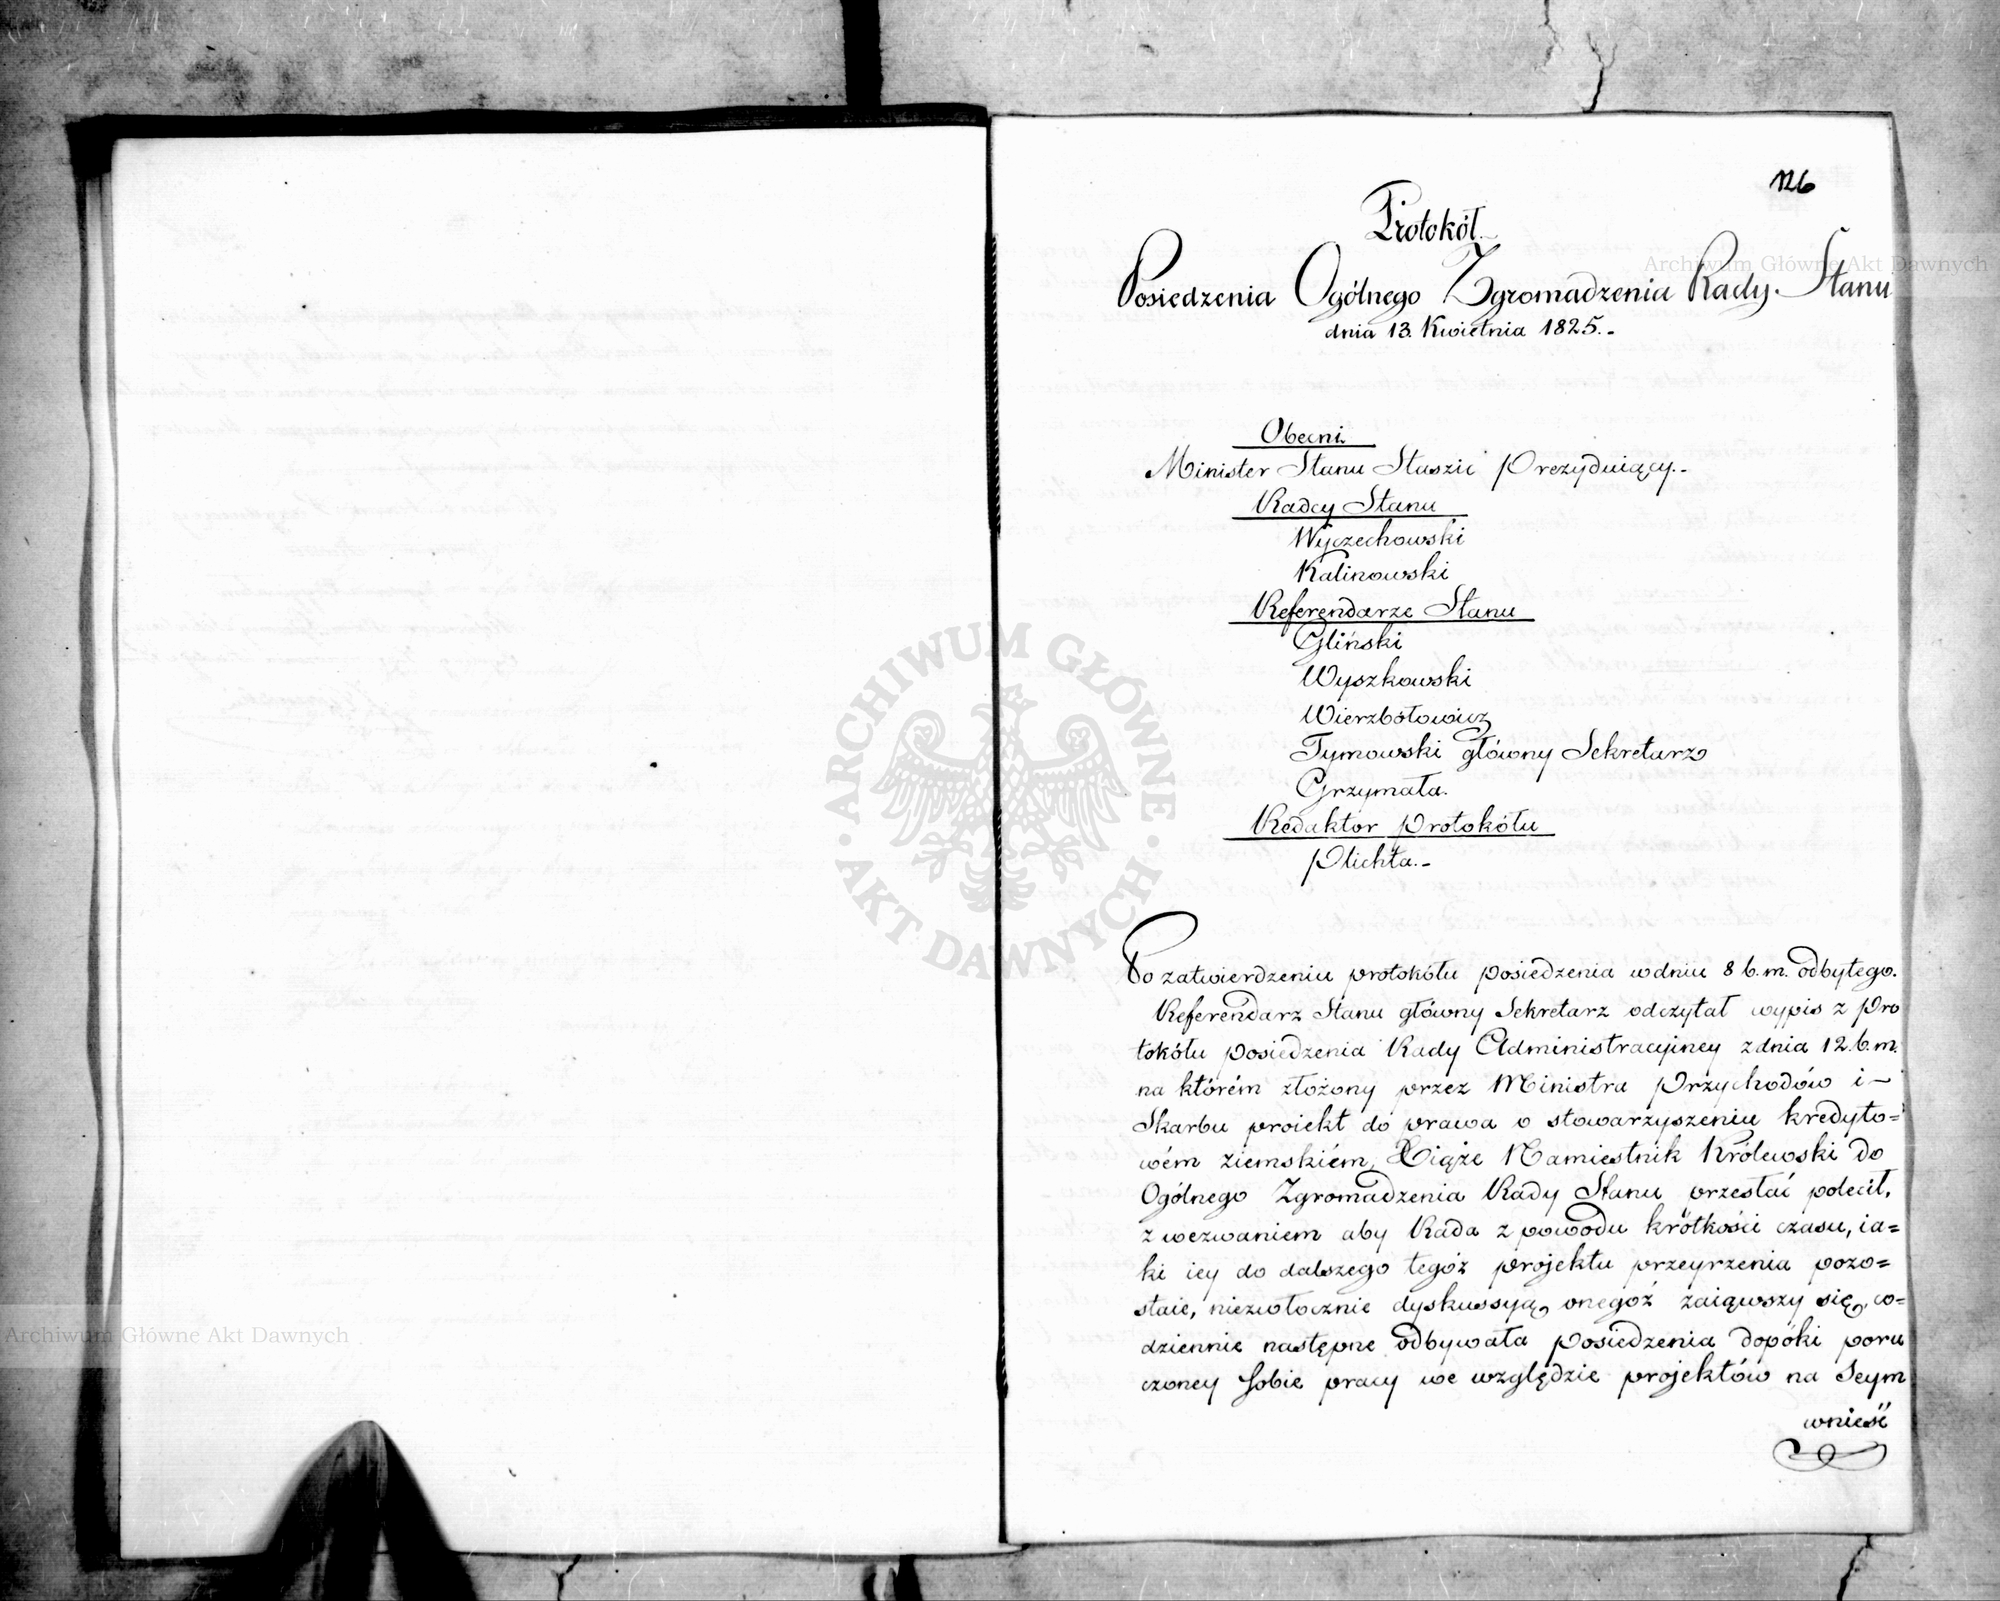 126
Protokół
Posiedzenia Ogólnego Zgromadzenia Rady Stanu
dnia 13. Kwietnia 1825.-
Obecni
Minister Stanu Staszic Prezyduiący.-
Radcy Stanu
Wyczechowski
Kalinowski
Referendarze Stanu
Gliński
Wyszkowski
Wierzbołowicz
Tymowski główny Sekretarz
Grzymała.
Redaktor Protokółu
Plichta.-
Po zatwierdzeniu protokółu posiedzenia w dniu 8 b.m. odbytego.
Referendarz Stanu główny Sekretarz odczytał wypis z Pro
tokółu posiedzenia Rady Administracyiney z dnia 12. b.m.
na którém złożony przez Ministra Przychodów i
Skarbu proiekt do prawa o stowarzyszeniu kredyto=
wém ziemskiém, Xiąże Namiestnik Królewski do
Ogólnego Zgromadzenia Rady Stanu przesłać polecił,
z wezwaniem aby Rada z powodu krótkości czasu, ia=
ki iey do dalszego tegóż projektu przeyrzenia pozo=
staie, niezwłocznie dyskussyą onegoż zaiąwszy się, co=
dziennie następne odbywała posiedzenia dopóki poru
czoney sobie pracy we względzie projektów na Seym
wnieść
ARCHIWUM GŁÓWNE
AKT DAWNYCH
Archiwum Główne Akt Dawnych
Archiwum Główne Akt Dawnych